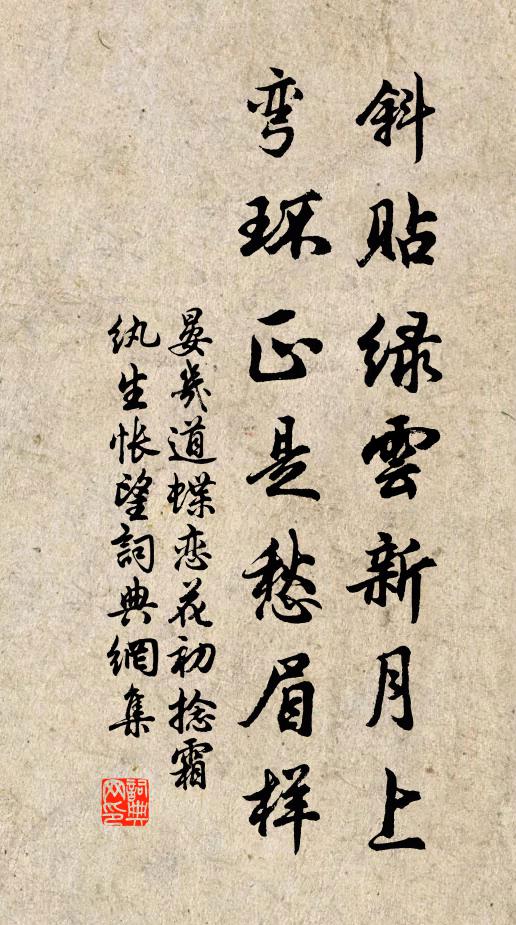 斜貼绿雲新月上
弯环正是愁眉样
晏幾道蝶恋花初捻霜
纨生怅望詞典網集
詞典网印